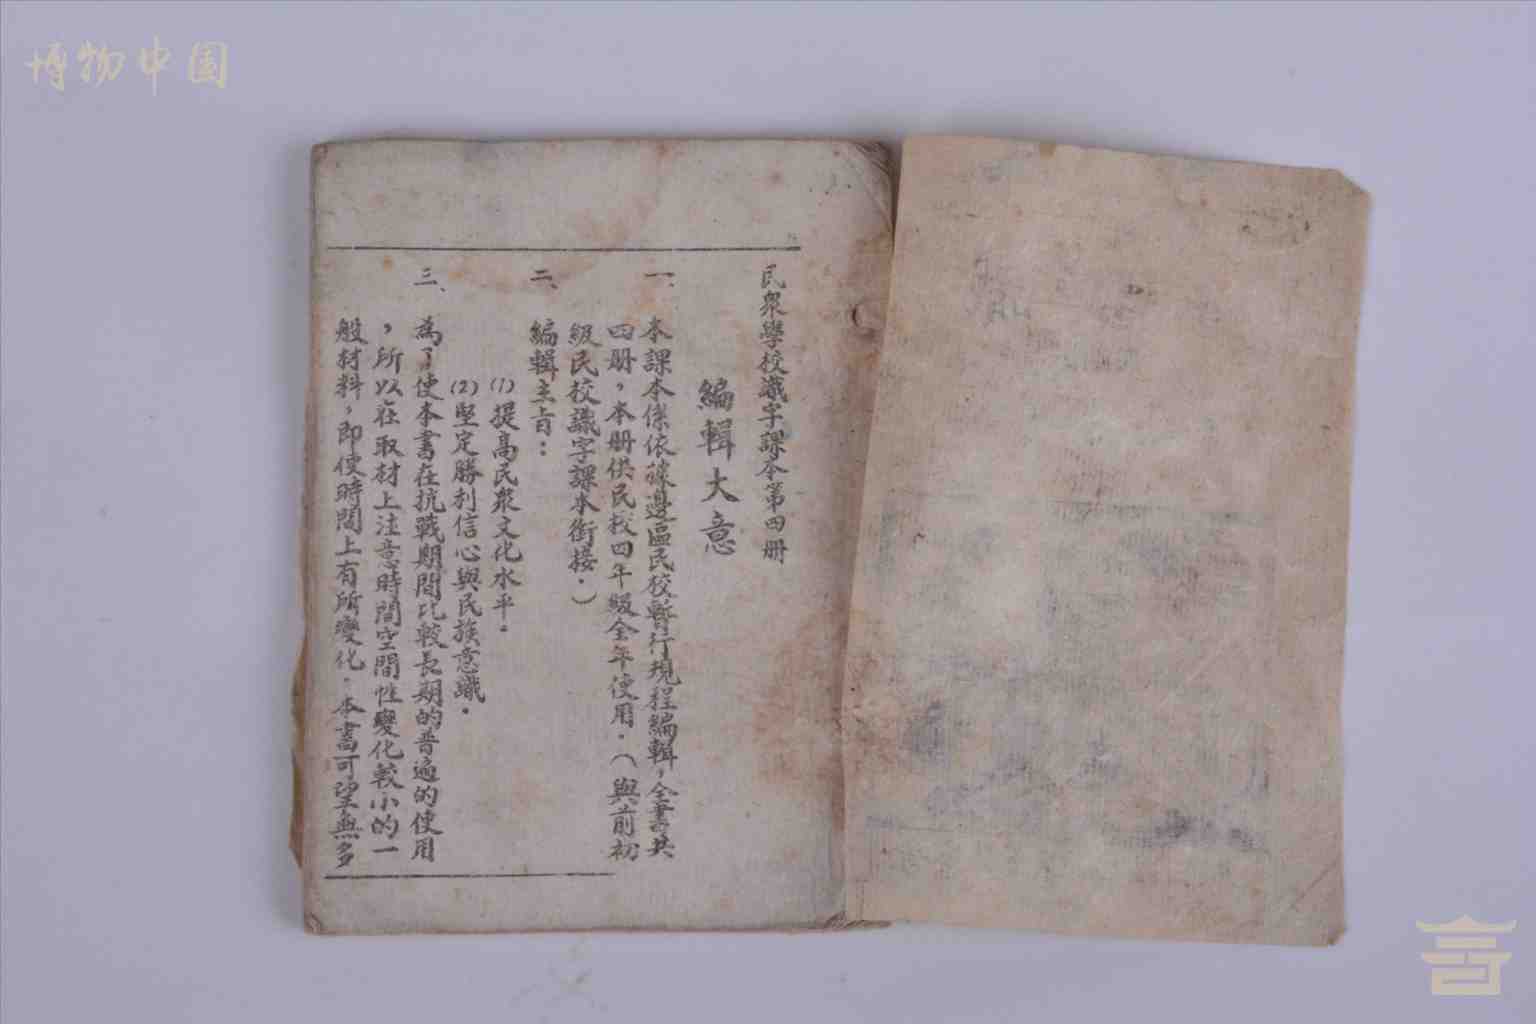 博物中国
民衆學校識字課本第四册
編輯大意
一、本課本係依據邊區民校暫行規程編輯，全書共
四册，本册供民校四年級全年使用．（與前初
級民校識字課本銜接．）
二、編輯主旨：
(1)提高民衆文化水平．
(2)堅定勝利信心與民族意識．
三、為了使本書在抗戰期間比較長期的普遍的使用
，所以在取材上注意時間空間性變化較小的一
般材料，即使時間上有所變化．本書可望無多